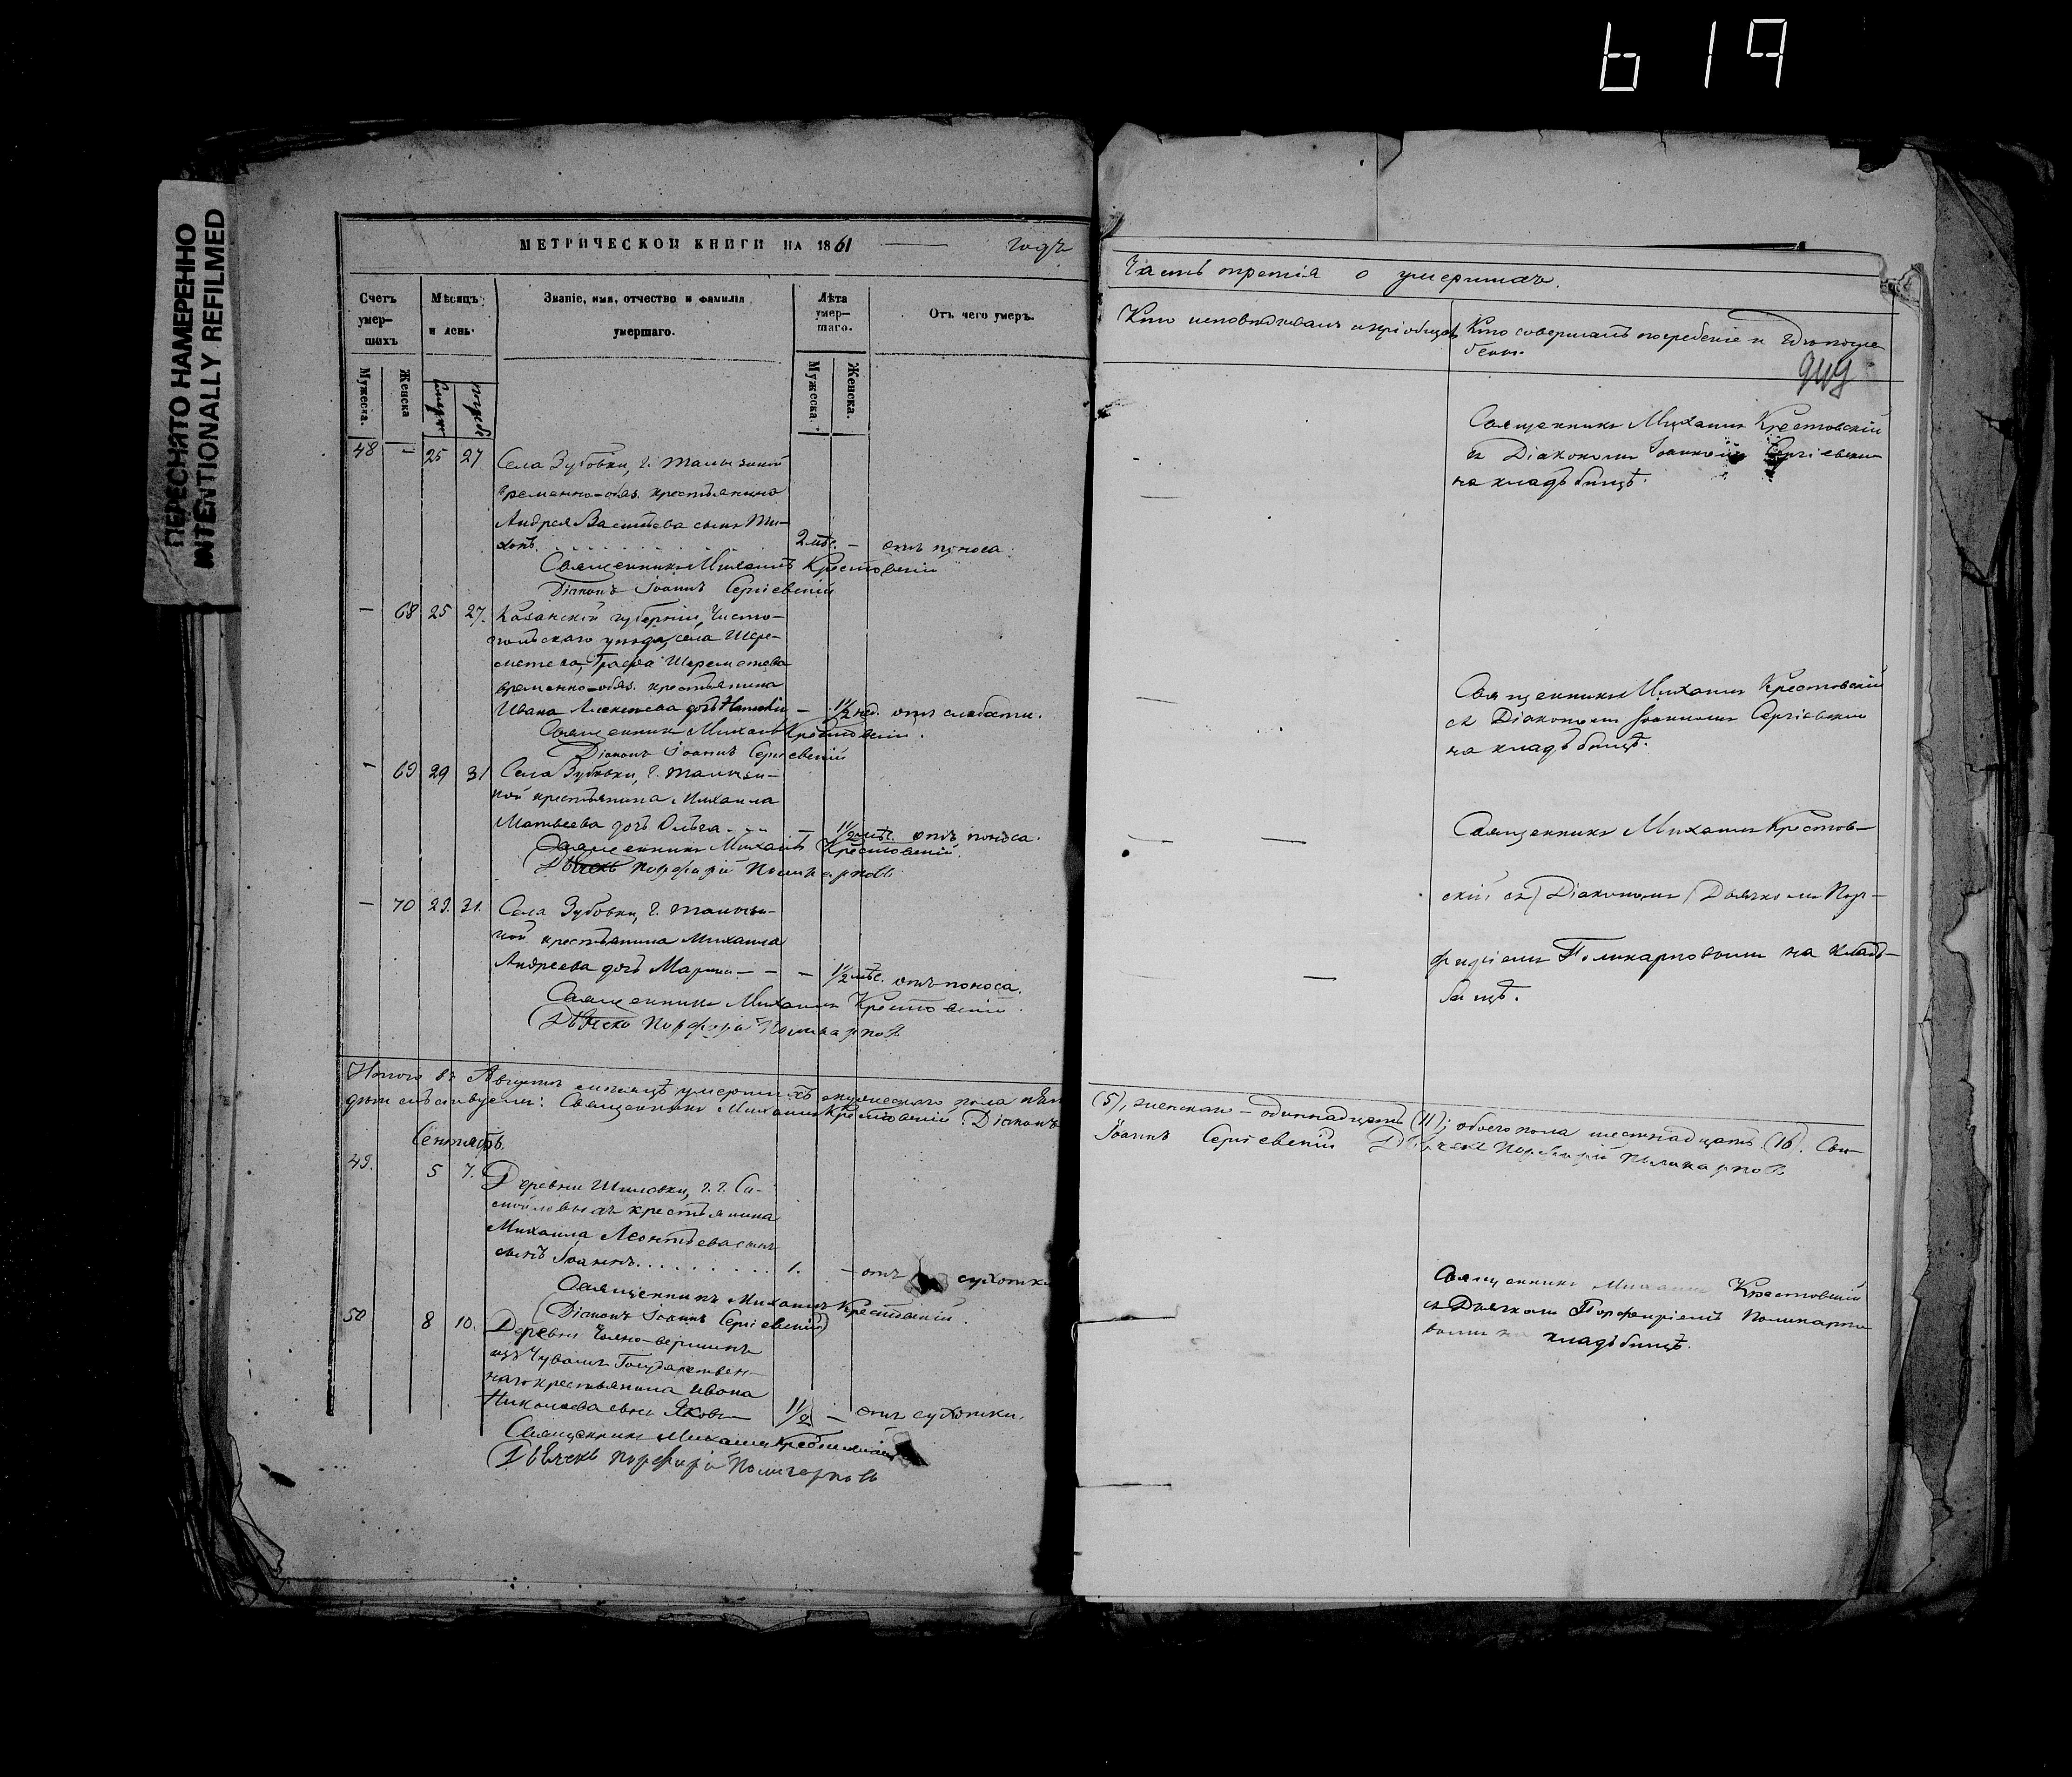 619
ПЕРЕСНЯТО НАМЕРЕННО
INTENTIONALLY REFILMED
МЕТРИЧЕСКОЙ КНИГИ НА 1861 годъ
Счетъ умер-шихъ
Мѣсяцъ и день.
Званіе, имя, отчество и фамилія умершаго.
Лѣта умер-шаго.
Отъ чего умеръ.
Мужеска.
Женска
Мужеска.
Женска.
48 — 25 27 Села Зубовки, г.
временно-обяз. крестьянина
Андрея Васильева сынъ Ти-
хонъ. 2 мѣс. — отъ поноса.
Священникъ Михаилъ Крестовскій
Діаконъ Іоаннъ Сергіевскій
— 68 25 27. Казанской губерніи, Чисто-
польскаго уѣзда, села Шере-
метева, Графа Шереметева
временно-обяз. крестьянина
Ивана Алексѣева дочь — 1 1/2 нед. отъ слабости.
Священникъ Михаилъ Крестовскій.
Діаконъ Іоаннъ Сергіевскій
— 69 29 31 Села Зубовки, г.
крестьянина Михаила
Матвѣева дочь Ольга — 1 1/2 мѣс. отъ поноса.
Священникъ Михаилъ Крестовскій.
Дьячекъ Порфирій Поликарповъ
— 70 29. 31. Села Зубовки, г.
крестьянина Михаила
Андреева дочь Марина — — — 1 1/2 мѣс. отъ поноса.
Священникъ Михаилъ Крестовскій.
Дьячекъ Порфирій Поликарповъ
Итого въ Августѣ мѣсяцѣ умершихъ мужескаго пола пять
Священникъ Михаилъ Крестовскій. Діаконъ
Сентябрь.
49. 5 7. Деревни Шиловки, г.г. Са-
мойловыхъ крестьянина
Михаила Леонтьева сынъ
сынъ Іоаннъ 1. — отъ сухотки
Священникъ Михаилъ Крестовскій.
Діаконъ Іоаннъ Сергіевскій
50 8 10. Деревни Чолно-вершинъ
изъ Чувашъ Государствен-
наго крестьянина Ивана
Николаева сынъ Яковъ 1 1/2 — отъ сухотки.
Священникъ Михаилъ Крестовскій
Дьячекъ Порфирій Поликарповъ
Часть третія о умершихъ.
Кто исповѣдывалъ и пріобщалъ
Кто совершалъ погребеніе и гдѣ погре-
бены.
949
Священникъ Михаилъ Крестовскій
съ Діакономъ Іоанномъ Сергіевскимъ
на кладбищѣ.
Священникъ Михаилъ Крестовскій
съ Діакономъ Іоанномъ Сергіевскимъ
на кладбищѣ.
Священникъ Михаилъ Крестов-
скій съ (Діакономъ) Дьячкомъ Пор-
фиріемъ Поликарповымъ на клад-
бищѣ.
(5), женскаго — одиннадцать (11); обоего пола шестнадцать (16).
Іоаннъ Сергіевскій Дьячекъ Порфирій Поликарповъ
Священникъ Михаилъ Крестовскій
съ Дьячкомъ Порфиріемъ Поликарпо-
вымъ на кладбищѣ.